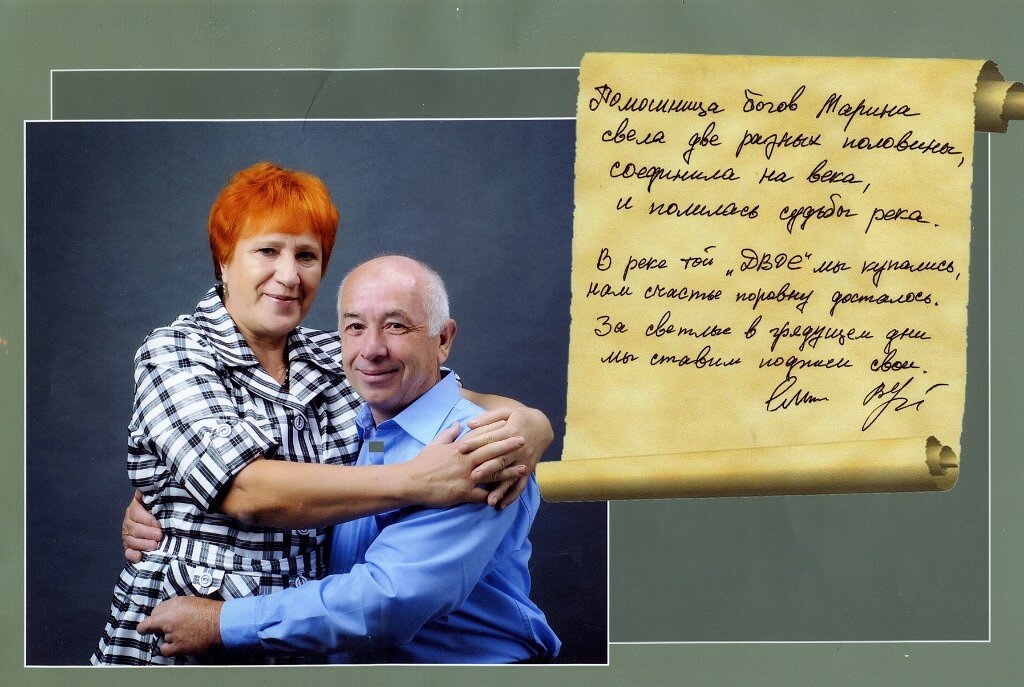 Помошница богов Марина
свела две разных половины,
соединила на века,
и полилась судьбы река.
В реке той „ДВОЕ“ мы купались,
нам счастье поровну досталось.
За светлые в грядущем дни
мы ставим подписи свои.